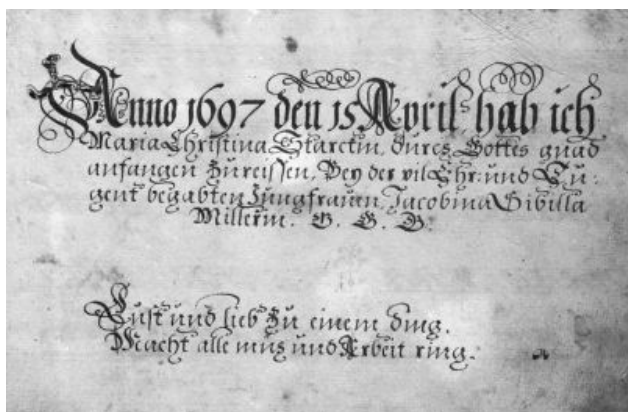 Anno 1697 den 15 April hab ich
Maria Christina Starckin, durch Gottes gnad
anfangen Zureissen, Bey der vil Ehr: und Tu:
gent begabten Jungfrauen, Jacobina Sibilla
Millerin. G. G. G.
Lust und lieb zu einem ding.
Macht alle müs und Arbeit ring.